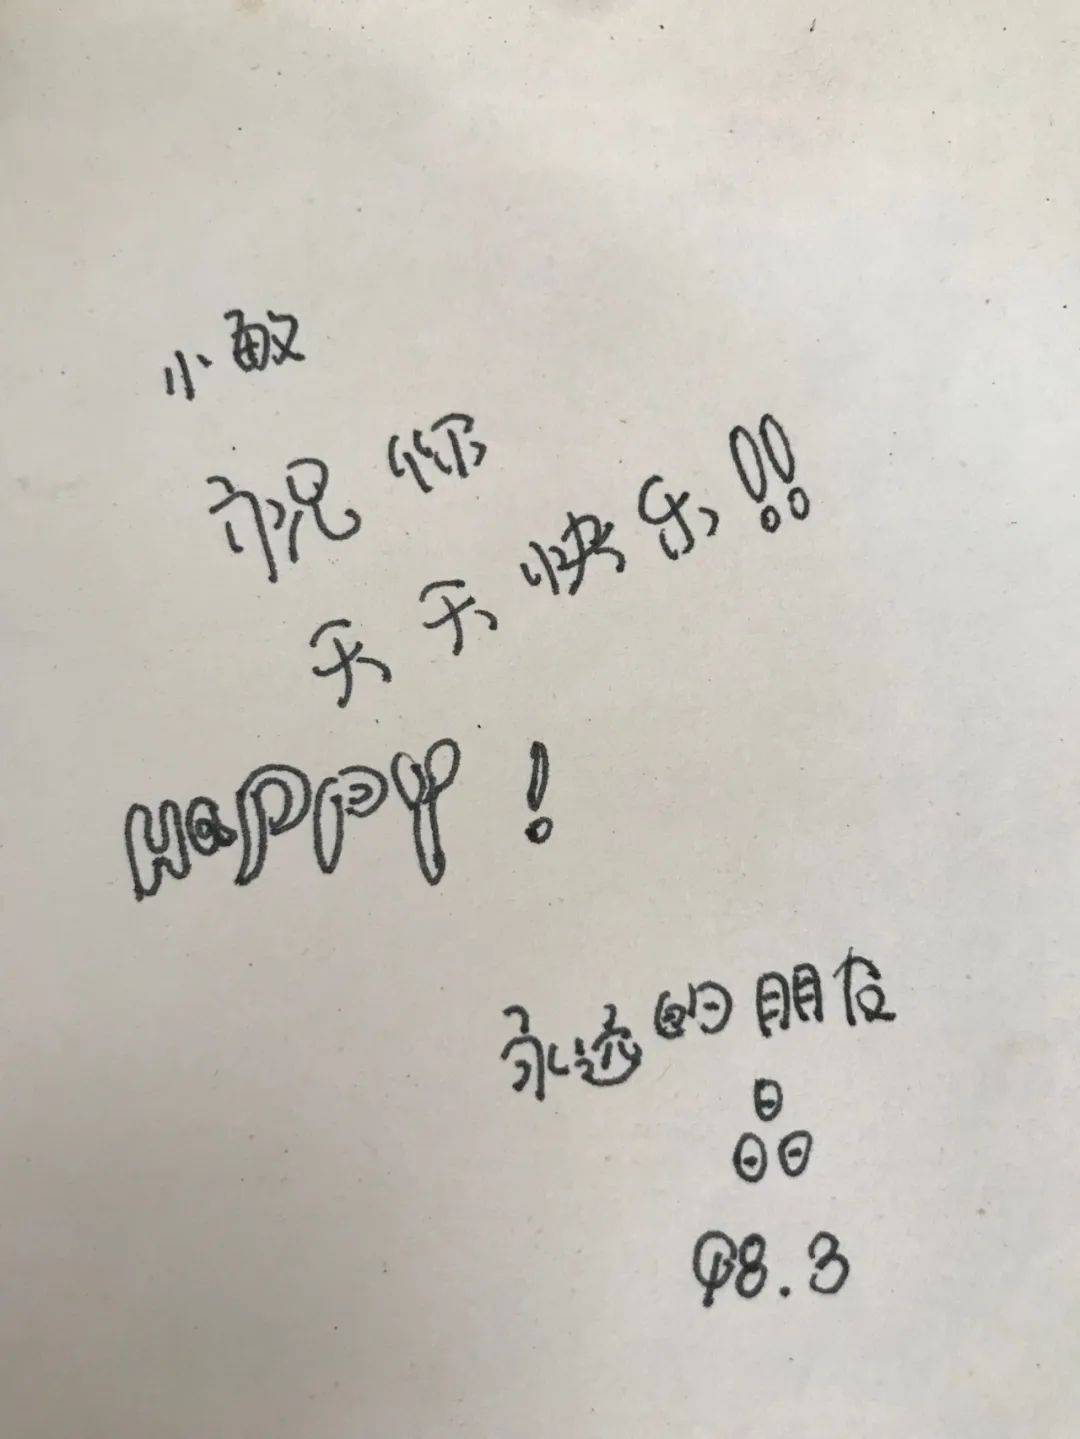 小敏
祝你
天天快乐!!
HAPPY!
永远的朋友
晶
98.3